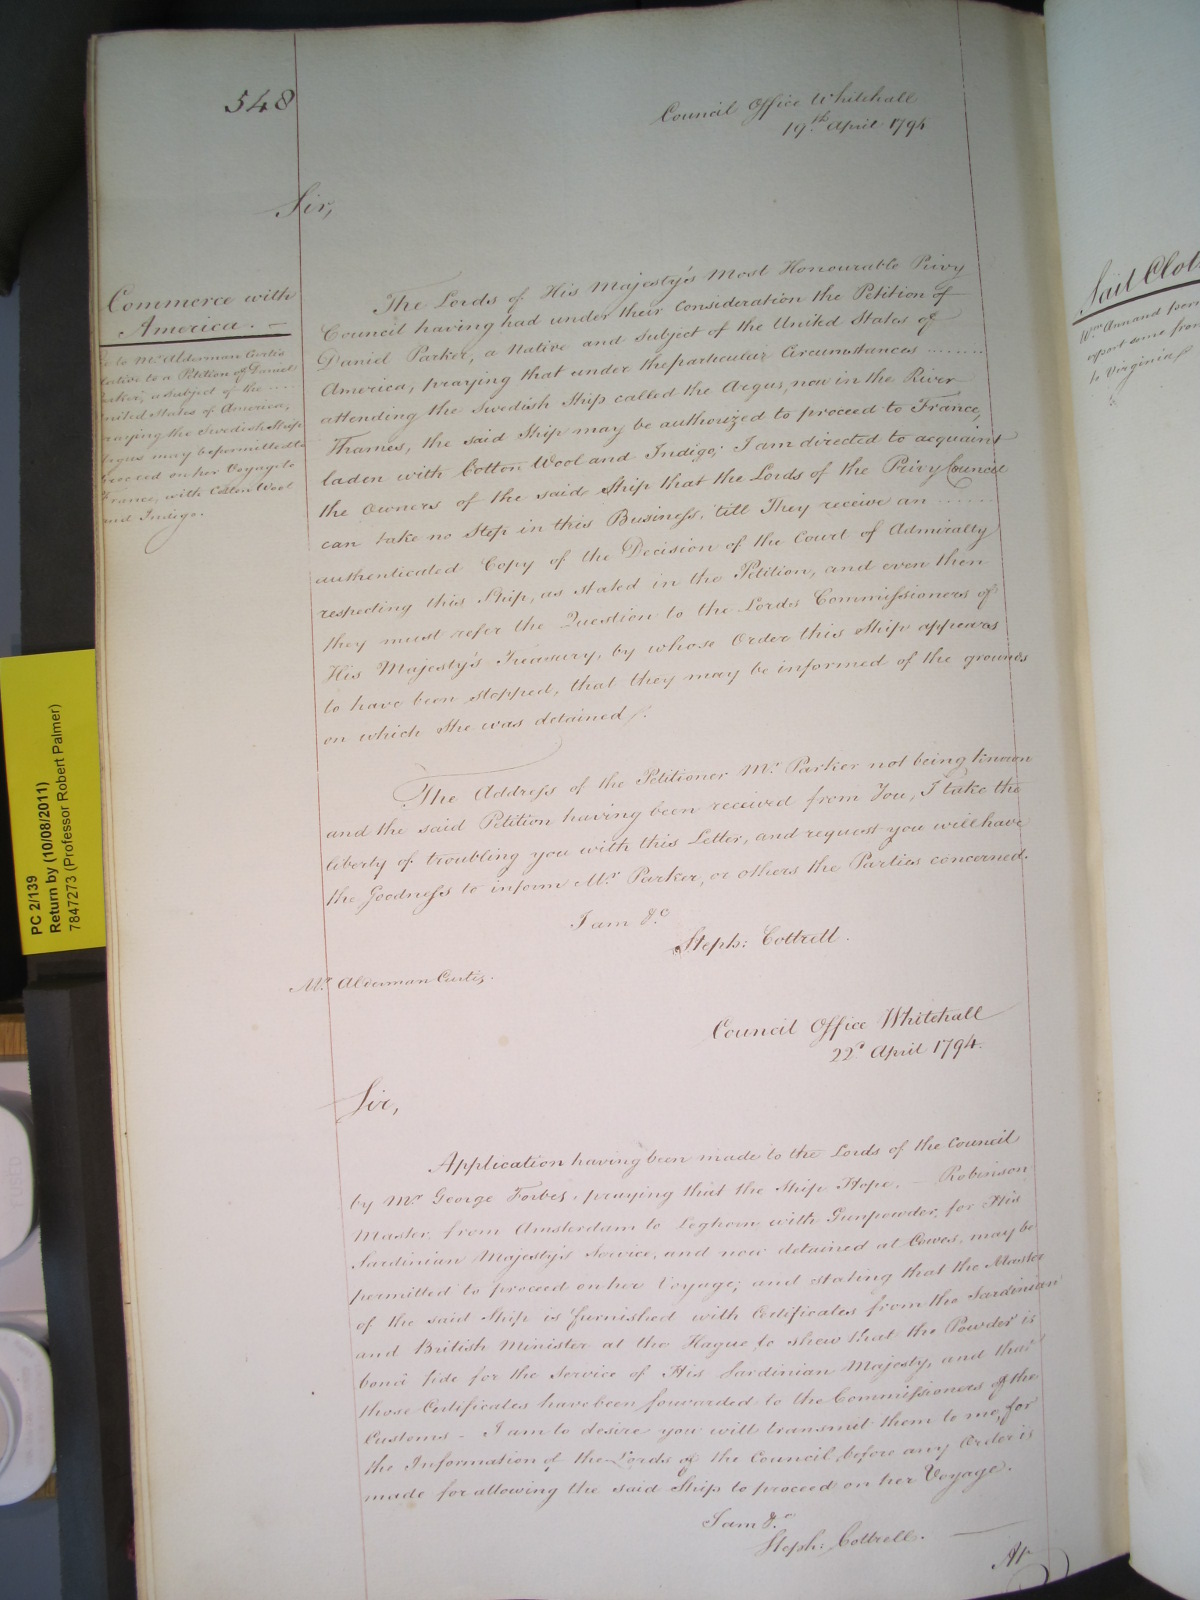 548
Council Office Whitehall
19th April 1794
Sir,
Commerce with
America. —
to Mr. Alderman Curtis
lative to a Petition of Daniel
arker, a subject of the ....
nited States of America,
raying the Swedish Ship
Argus may be permitted to
proceed on her Voyage to
France, with Cotton Wool
and Indigo.
The Lords of His Majesty's Most Honourable Privy
Council having had under their Consideration the Petition of
Daniel Parker, a Native and Subject of the United States of
America, praying that under the particular Circumstances ........
attending the Swedish Ship called the Argus, now in the River
Thames, the said Ship may be authorized to proceed to France,
laden with Cotton Wool and Indigo; I am directed to acquaint
the Owners of the said Ship that the Lords of the Privy Council
can take no Step in this Business, 'till They receive an .......
authenticated Copy of the Decision of the Court of Admiralty
respecting this Ship, as stated in the Petition, and even then
they must refer the Question to the Lords Commissioners of
His Majesty's Treasury, by whose Order this Ship appears
to have been stopped, that they may be informed of the grounds
on which She was detained.
The Address of the Petitioner Mr. Parker not being known
and the said Petition having been received from You, I take the
liberty of troubling you with this Letter, and request you will have
the Goodness to inform Mr. Parker, or others the Parties concerned.
I am &c
Steph: Cottrell.
Mr. Alderman Curtis.
Council Office Whitehall
22d April 1794.
Sir,
Application having been made to the Lords of the Council
by Mr George Forbes, praying that the Ship Hope, — Robinson
Master, from Amsterdam to Leghorn with Gunpowder, for His
Sardinian Majesty's Service, and now detained at Cowes, may be
permitted to proceed on her Voyage; and stating that the Master
of the said Ship is furnished with Certificates from the Sardinian
and British Minister at the Hague, to shew that the Powder is
bonâ fide for the Service of His Sardinian Majesty, and that
those Certificates have been forwarded to the Commissioners of the
Customs - I am to desire you will transmit them to me, for
the Information of the Lords of the Council, before any Order is
made for allowing the said Ship to proceed on her Voyage.
I am &c
Steph: Cottrell. —
Sail Clot
Wm Annand perm
export some from
to Virginia
PC 2/139
Return by (10/08/2011)
7847273 (Professor Robert Palmer)